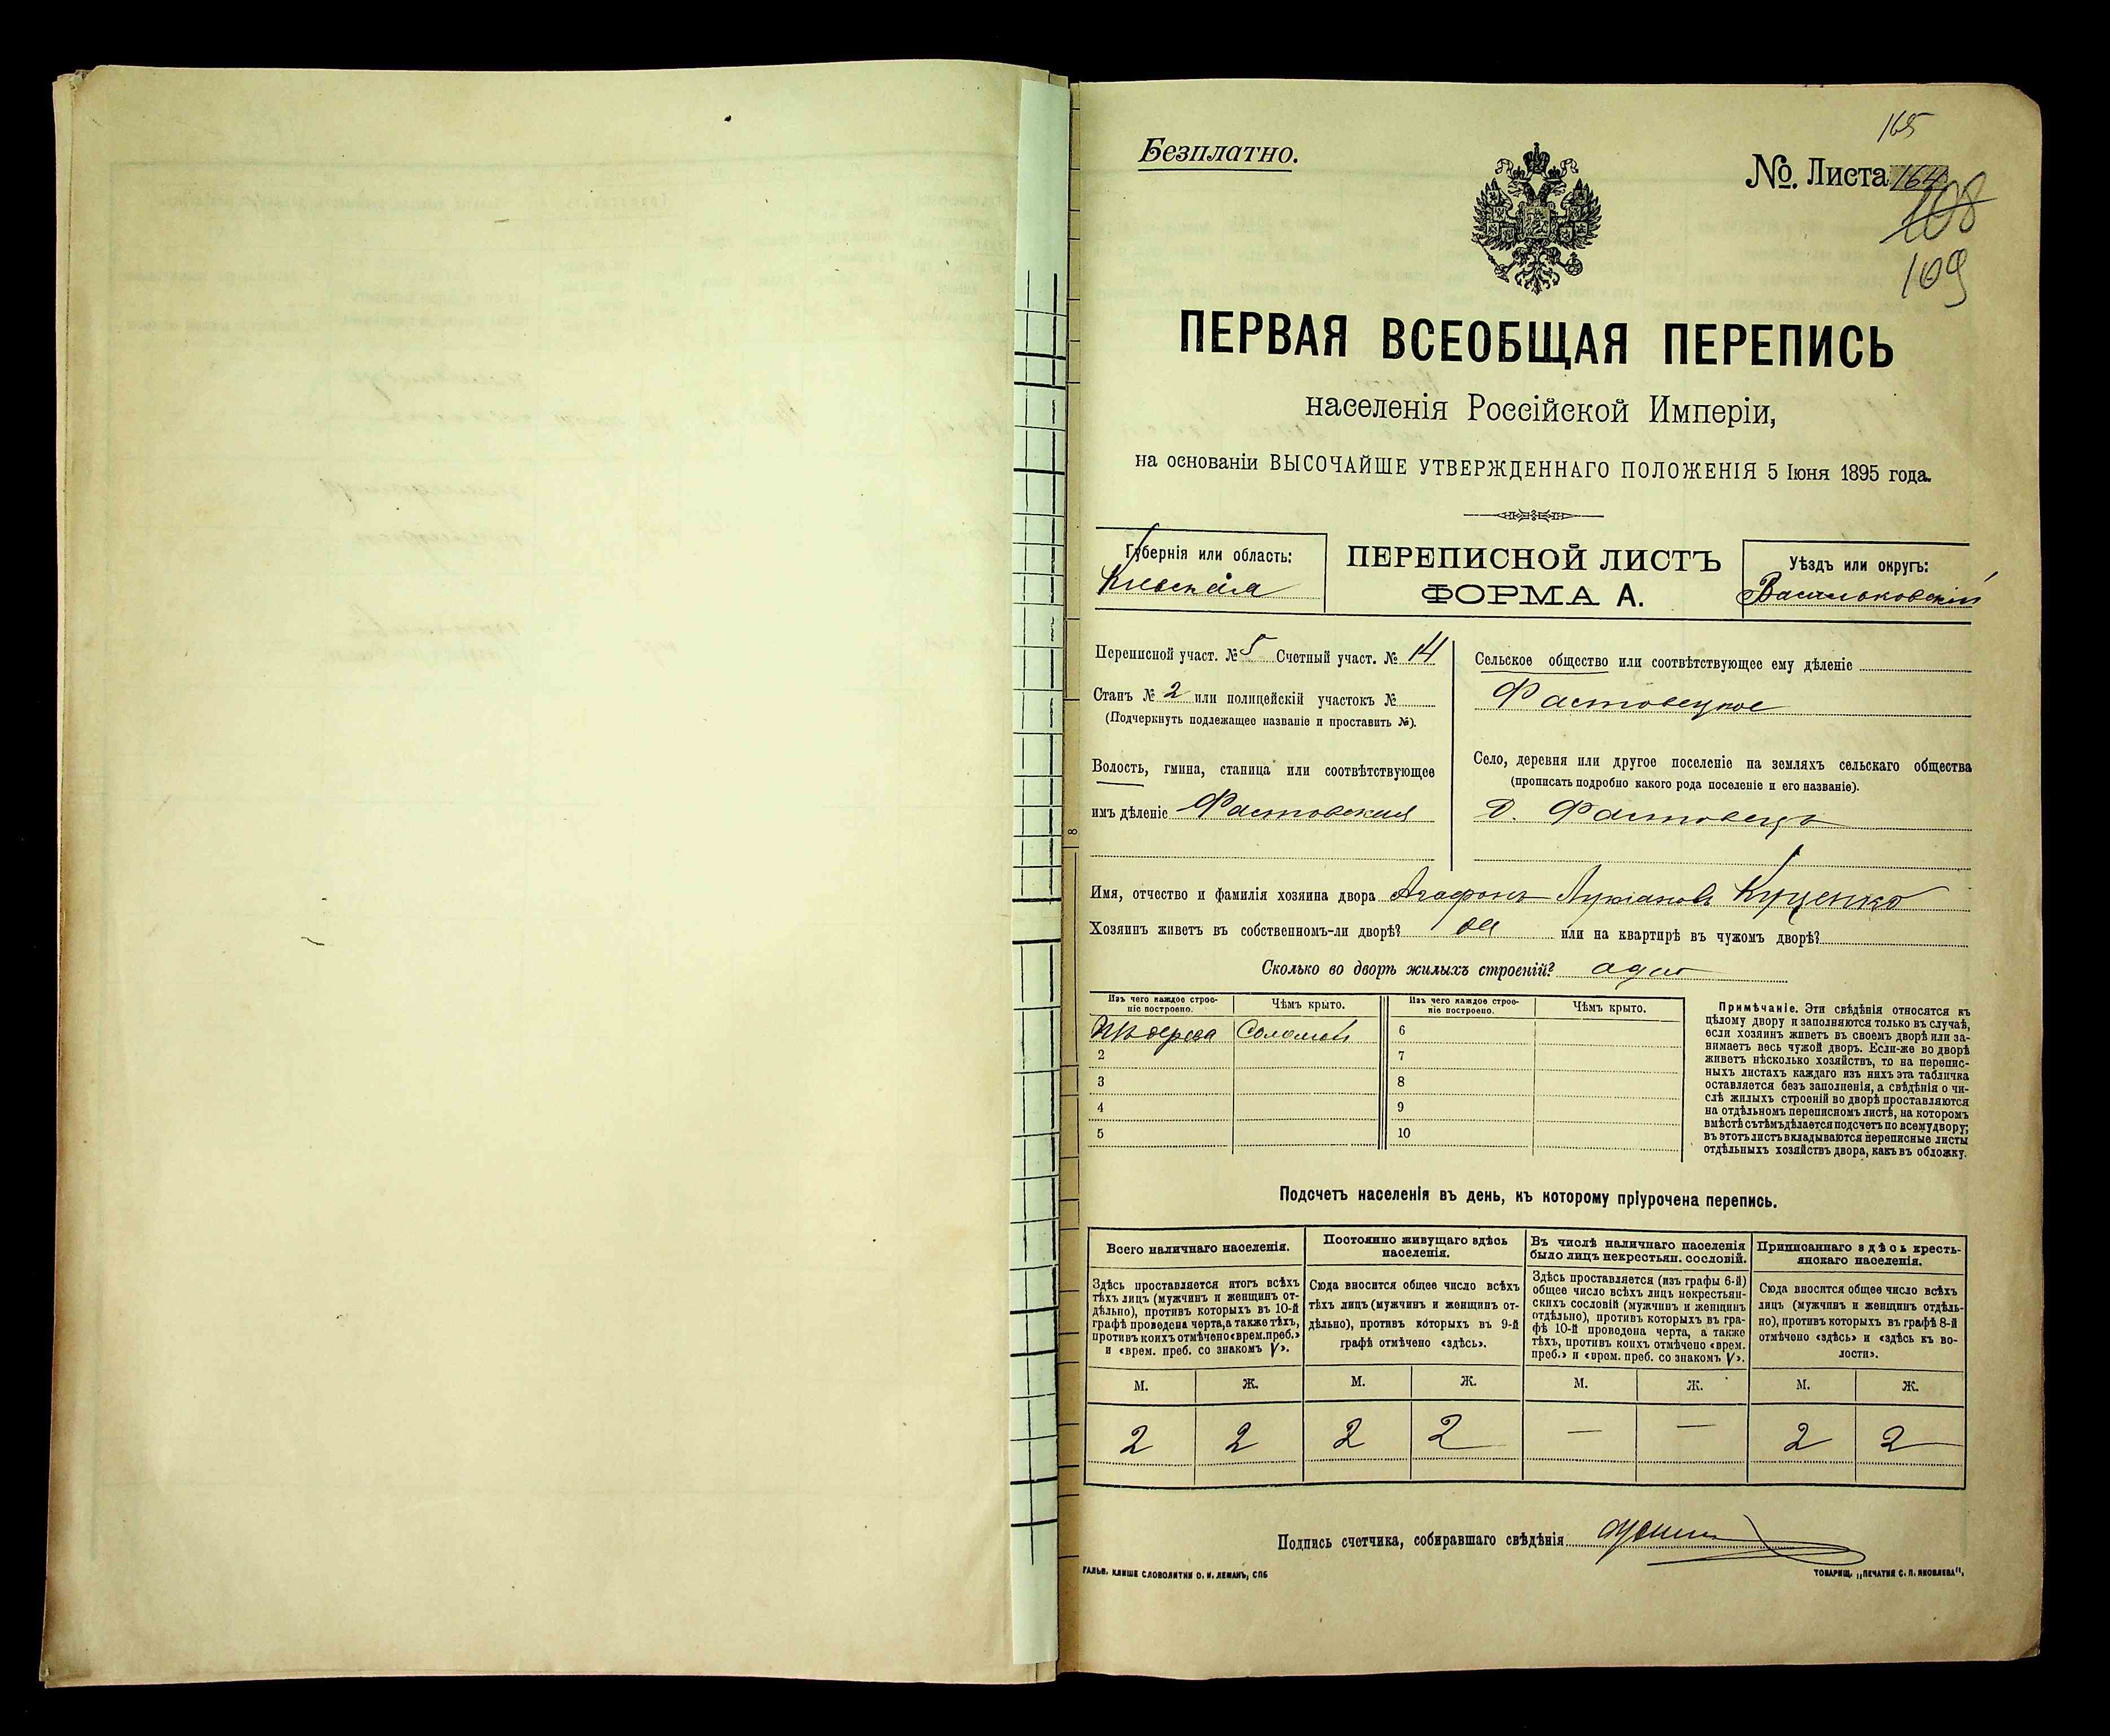 165
Безплатно.
№. Листа 164
108
109
ПЕРВАЯ ВСЕОБЩАЯ ПЕРЕПИСЬ
населенія Россійской Имперіи,
на основаніи ВЫСОЧАЙШЕ УТВЕРЖДЕННАГО ПОЛОЖЕНІЯ 5 Іюня 1895 года.
Губернія или область:
Кіевская
ПЕРЕПИСНОЙ ЛИСТЪ
ФОРМА А.
Уѣздъ или округъ:
Васильковскій
Переписной участ. № 5 Счетный участ. № 14
Станъ № 2 или полицейскій участокъ №
(Подчеркнуть подлежащее названіе и проставить №).
Волость, гмина, станица или соотвѣтствующее
имъ дѣленіе Фастовская
Сельское общество или соотвѣтствующее ему дѣленіе
Фастовецкое
Село, деревня или другое поселеніе на земляхъ сельскаго общества
(прописать подробно какого рода поселеніе и его названіе).
Д. Фастовецъ
Имя, отчество и фамилія хозяина двора Агафонъ Лукіановъ Куценко
Хозяинъ живетъ въ собственномъ-ли дворѣ? да или на квартирѣ въ чужомъ дворѣ?
Сколько во дворѣ жилыхъ строеній? одно
Изъ чего каждое строе-
ніе построено.
Чѣмъ крыто.
Изъ чего каждое строе-
ніе построено.
Чѣмъ крыто.
Изъ дерева Соломой 6
2 7
3 8
4 9
5 10
Примѣчаніе. Эти свѣдѣнія относятся къ
цѣлому двору и заполняются только въ случаѣ,
если хозяинъ живетъ въ своемъ дворѣ или за-
нимаетъ весь чужой дворъ. Если-же во дворѣ
живетъ нѣсколько хозяйствъ, то на перепис-
ныхъ листахъ каждаго изъ нихъ эта табличка
оставляется безъ заполненія, а свѣдѣнія о чи-
слѣ жилыхъ строеній во дворѣ проставляются
на отдѣльномъ переписномъ листѣ, на которомъ
вмѣстѣ съ тѣмъ дѣлается подсчетъ по всему двору;
въ этотъ листъ вкладываются переписные листы
отдѣльныхъ хозяйствъ двора, какъ въ обложку.
Подсчетъ населенія въ день, къ которому пріурочена перепись.
Всего наличнаго населенія.
Здѣсь проставляется итогъ всѣхъ
тѣхъ лицъ (мужчинъ и женщинъ от-
дѣльно), противъ которыхъ въ 10-й
графѣ проведена черта, а также тѣхъ,
противъ коихъ отмѣчено «врем. преб.»
и «врем. преб. со знакомъ V».
Постоянно живущаго здѣсь
населенія.
Сюда вносится общее число всѣхъ
тѣхъ лицъ (мужчинъ и женщинъ от-
дѣльно), противъ которыхъ въ 9-й
графѣ отмѣчено «здѣсь».
Въ числѣ наличнаго населенія
было лицъ некрестьян. сословій.
Здѣсь проставляется (изъ графы 6-й)
общее число всѣхъ лицъ некрестьян-
скихъ сословій (мужчинъ и женщинъ
отдѣльно), противъ которыхъ въ гра-
фѣ 10-й проведена черта, а также
тѣхъ, противъ коихъ отмѣчено «врем.
преб.» и «врем. преб. со знакомъ V».
Приписаннаго здѣсь кресть-
янскаго населенія.
Сюда вносится общее число всѣхъ
лицъ (мужчинъ и женщинъ отдѣль-
но), противъ которыхъ въ графѣ 8-й
отмѣчено «здѣсь» и «здѣсь къ во-
лости».
М. Ж. М. Ж. М. Ж. М. Ж.
2 2 2 2 — — 2 2
Подпись счетчика, собиравшаго свѣдѣнія
ГАЛЬВ. КЛИШЕ СЛОВОЛИТНИ О. И. ЛЕМАНЪ, СПБ
ТОВАРИЩ. „ПЕЧАТНЯ С. П. ЯКОВЛЕВА“,